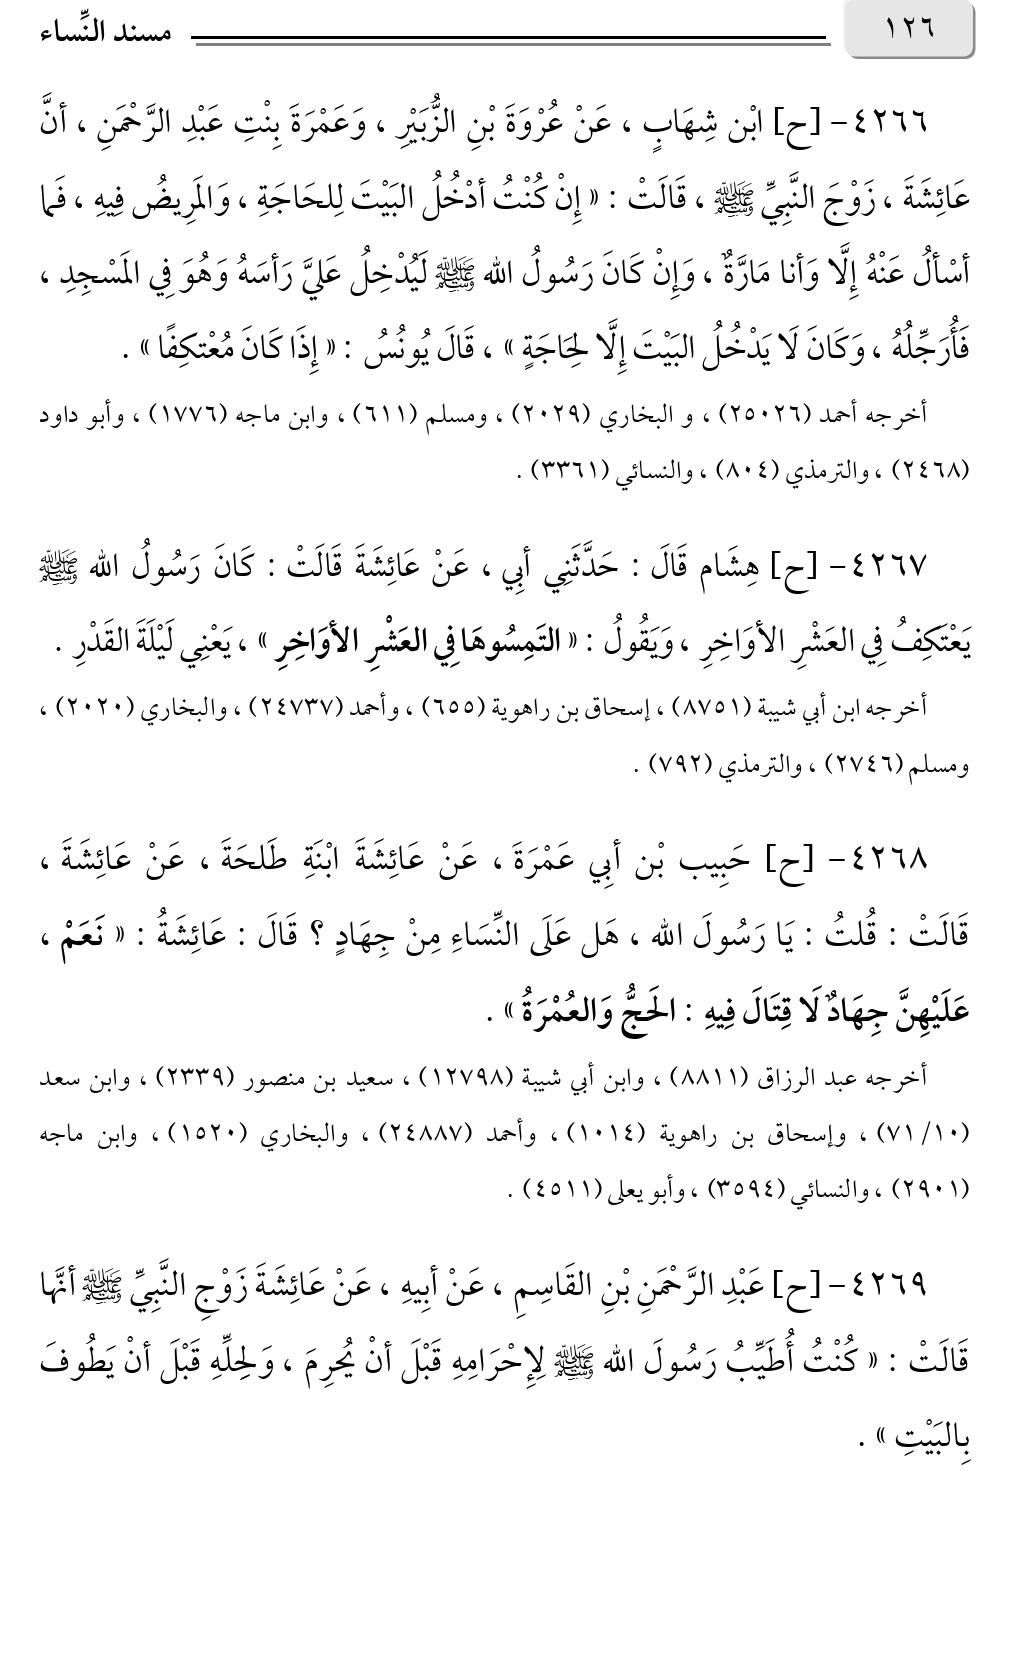 ١٢٦
مسند النِّساء
٤٢٦٦- [ح] ابْن شِهَابٍ ، عَنْ عُرْوَةَ بْنِ الزُّبَيْرِ ، وَعَمْرَةَ بِنْتِ عَبْدِ الرَّحْمَنِ ، أنَّ
عَائِشَةَ ، زَوْجَ النَّبِيِّ ﷺ ، قَالَتْ : « إِنْ كُنْتُ أدْخُلُ البَيْتَ لِلحَاجَةِ ، وَالمَرِيضُ فِيهِ ، فَما
أسْألُ عَنْهُ إِلَّا وَأنا مَارَّةٌ ، وَإِنْ كَانَ رَسُولُ الله ﷺ لَيُدْخِلُ عَليَّ رَأسَهُ وَهُوَ فِي المَسْجِدِ ،
فَأُرَجِّلُهُ ، وَكَانَ لَا يَدْخُلُ البَيْتَ إِلَّا لِحَاجَةٍ » ، قَالَ يُونُسُ : « إِذَا كَانَ مُعْتكِفًا » .
أخرجه أحمد (٢٥٠٢٦) ، و البخاري (٢٠٢٩) ، ومسلم (٦١١) ، وابن ماجه (١٧٧٦) ، وأبو داود
(٢٤٦٨) ، والترمذي (٨٠٤) ، والنسائي (٣٣٦١) .
٤٢٦٧- [ح] هِشَام قَالَ : حَدَّثَنِي أبِي ، عَنْ عَائِشَةَ قَالَتْ : كَانَ رَسُولُ الله ﷺ
يَعْتَكِفُ فِي العَشْرِ الأوَاخِرِ ، وَيَقُولُ : « التَمِسُوهَا فِي العَشْرِ الأوَاخِرِ » ، يَعْنِي لَيْلَةَ القَدْرِ .
أخرجه ابن أبي شيبة (٨٧٥١) ، إسحاق بن راهوية (٦٥٥) ، وأحمد (٢٤٧٣٧) ، والبخاري (٢٠٢٠) ،
ومسلم (٢٧٤٦) ، والترمذي (٧٩٢) .
٤٢٦٨- [ح] حَبِيب بْن أبِي عَمْرَةَ ، عَنْ عَائِشَةَ ابْنَةِ طَلحَةَ ، عَنْ عَائِشَةَ ،
قَالَتْ : قُلتُ : يَا رَسُولَ الله ، هَل عَلَى النِّسَاءِ مِنْ جِهَادٍ ؟ قَالَ : عَائِشَةُ : « نَعَمْ ،
عَلَيْهِنَّ جِهَادٌ لَا قِتَالَ فِيهِ : الحَجُّ وَالعُمْرَةُ » .
أخرجه عبد الرزاق (٨٨١١) ، وابن أبي شيبة (١٢٧٩٨) ، سعيد بن منصور (٢٣٣٩) ، وابن سعد
(٧١/١٠) ، وإسحاق بن راهوية (١٠١٤) ، وأحمد (٢٤٨٨٧) ، والبخاري (١٥٢٠) ، وابن ماجه
(٢٩٠١) ، والنسائي (٣٥٩٤) ، وأبو يعلى (٤٥١١) .
٤٢٦٩- [ح] عَبْدِ الرَّحْمَنِ بْنِ القَاسِمِ ، عَنْ أبِيهِ ، عَنْ عَائِشَةَ زَوْجِ النَّبِيِّ ﷺ أنَّها
قَالَتْ : « كُنْتُ أُطَيِّبُ رَسُولَ الله ﷺ لِإِحْرَامِهِ قَبْلَ أنْ يُحرِمَ ، وَلِحلِّهِ قَبْلَ أنْ يَطُوفَ
بِالبَيْتِ » .